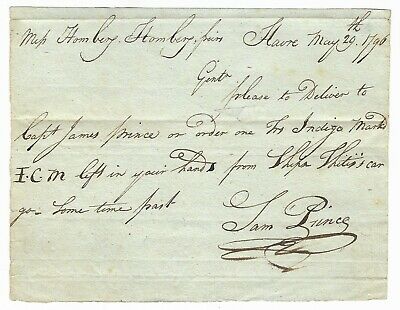 Mess Hombers. Hombers, frires Havre May 29.th 1796
Gentn
please to Deliver to
Capt James Prince or order one Hs Indigo Marks
I.C.M left in your hands from Ships cargo
go - Some time past
Sam Prince